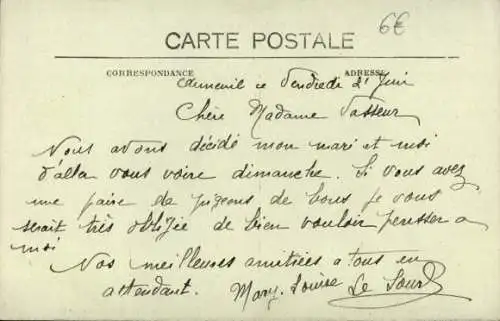 6€
CARTE POSTALE
CORRESPONDANCE ADRESSE
ce Vendredi 21 Juin
Chère Madame Vasseur
Nous avons décidé mon mari et moi
d'aller vous voire dimanche. Si vous avez
une paire de pigeons de bous je vous
serait très obligée de bien vouloir penser a
moi
Nos meilleures amitiées a tous en
attendant. Mary-Louise Le Sourd